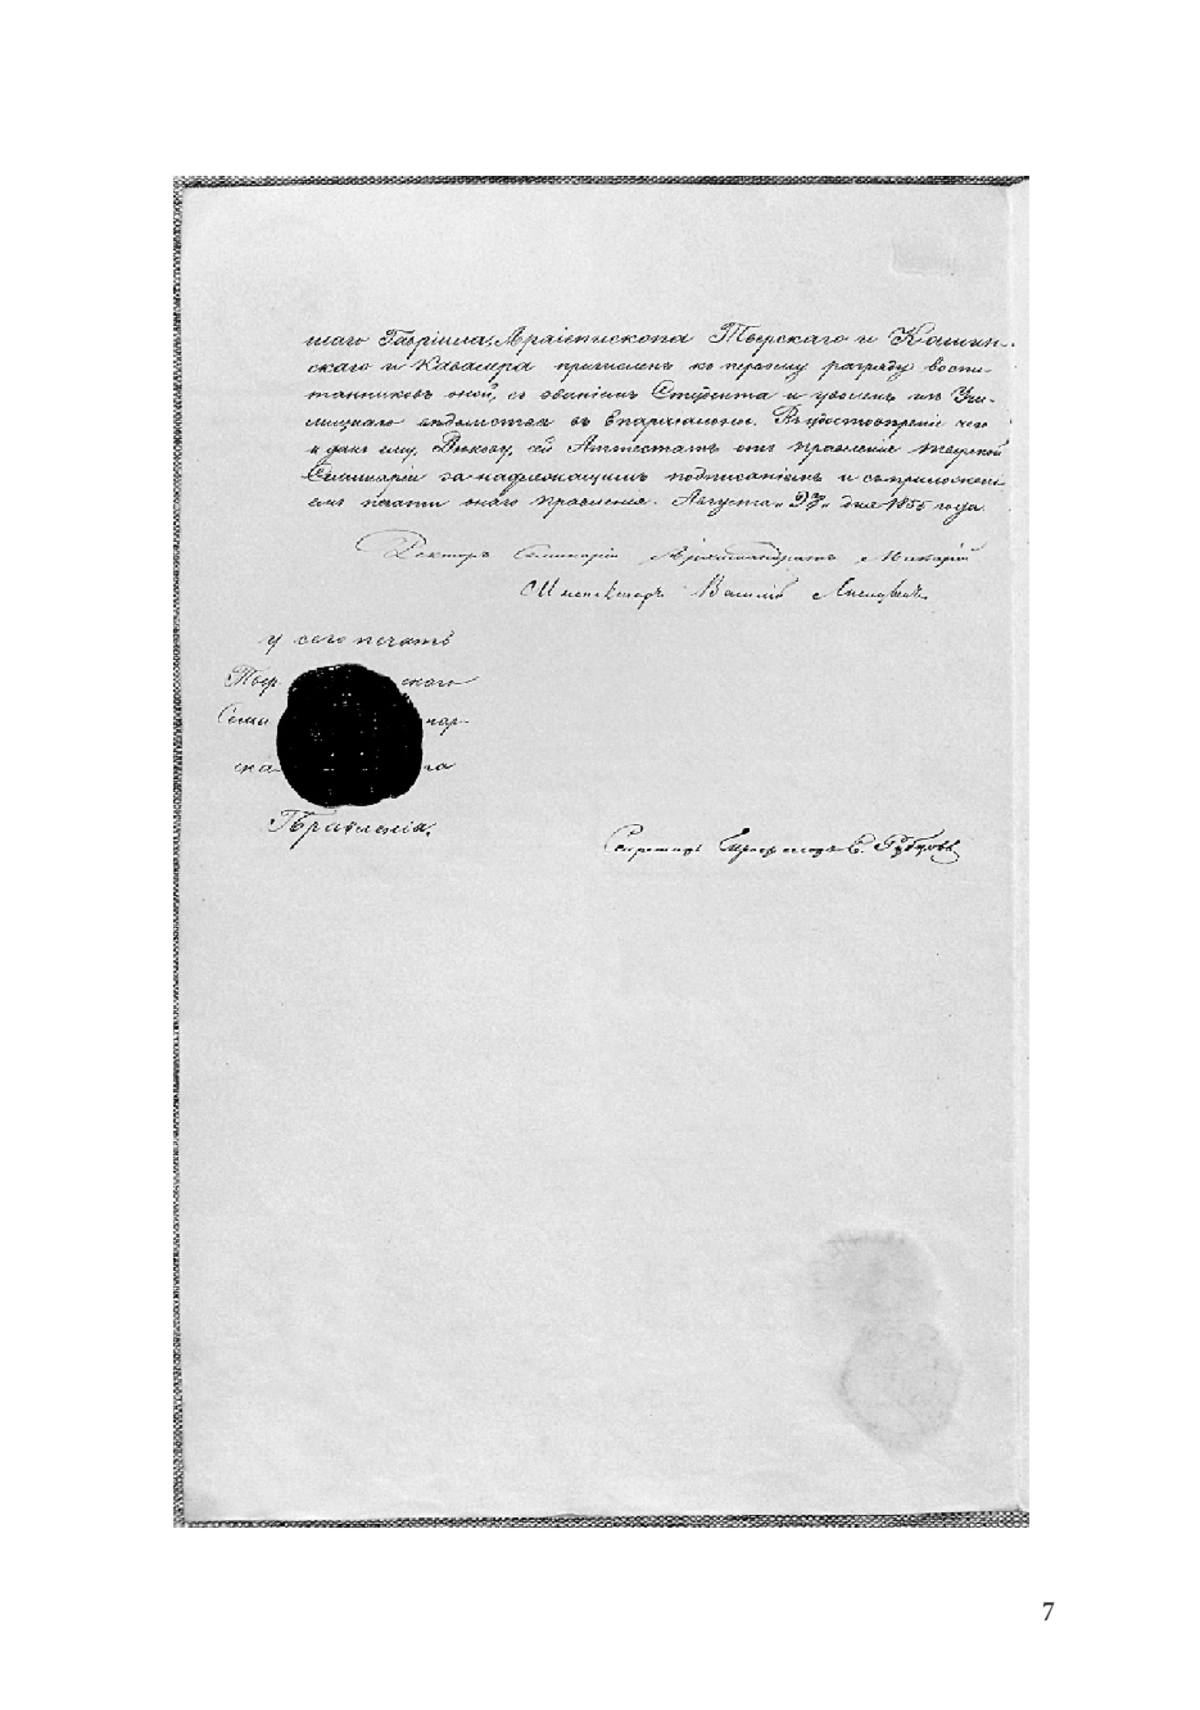 шаго Гавріила, Архіепископа Тверскаго и Кашин-
скаго и Кавалера причисленъ къ первому разряду воспи-
танниковъ оной, съ званіемъ Студента и уволенъ изъ Учи-
лищнаго вѣдомства въ Епархіальное. Въ удостовѣреніе чего
и данъ ему, сей Аттестатъ отъ Правленія Тверской
Семинаріи за надлежащимъ подписаніемъ и съ приложені-
емъ печати онаго Правленія. Августа дня 1855 года.
Ректоръ Семинаріи Архимандритъ Макарій
Инспекторъ Василій
у сего печать
Твер скаго
Семи нар-
ска го
Правленія.
Секретарь Профессоръ В. Рубцовъ
7